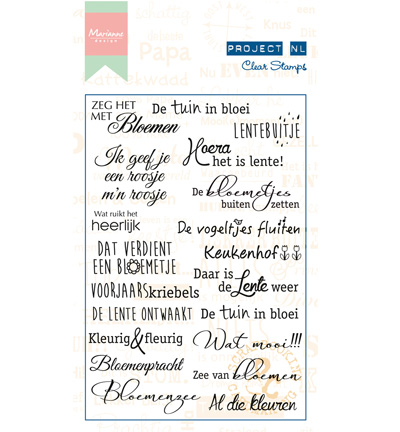 Marianne
design
PROJECT NL
Clear Stamps
Papa
ZEG HET
MET Bloemen
De tuin in bloei
LENTEBUITJE
Ik geef je
een roosje
m'n roosje
Hoera
het is lente!
De bloemetjes
buiten zetten
Wat ruikt het
heerlijk
De vogeltjes fluiten
DAT VERDIENT
EEN BLOEMETJE
Keukenhof
Daar is
de Lente weer
VOORJAARSkriebels
DE LENTE ONTWAAKT
De tuin in bloei
Kleurig & fleurig
Wat mooi!!!
Bloemenpracht
Zee van bloemen
Bloemenzee
Al die kleuren